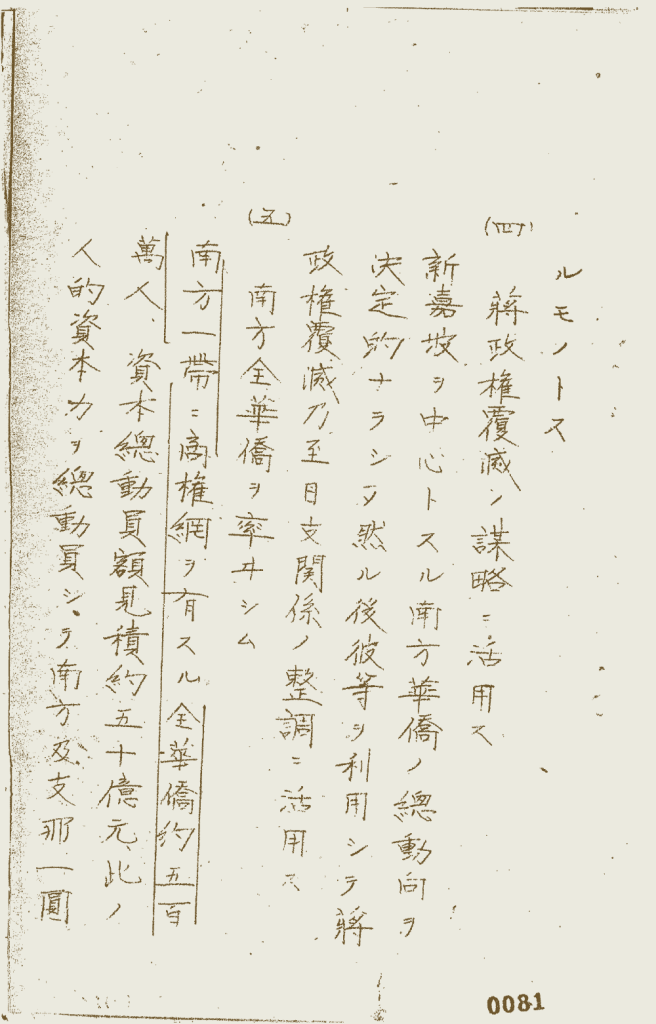 ルモノトス
(四)
蔣政權覆滅ノ謀略ニ活用ス
新嘉坡ヲ中心トスル南方華僑ノ總動向ヲ
決定的ナラシメ然ル後彼等ヲ利用シテ蔣
政権覆滅乃至日支関係ノ整調ニ活用ス
(五)
南方全華僑ヲ率ヰシム
南方一帶ニ商権網ヲ有スル全華僑約五百
萬人、資本總動員額見積約五十億元、此ノ
人的資本力ヲ總動員シテ南方及支那一圓
0081